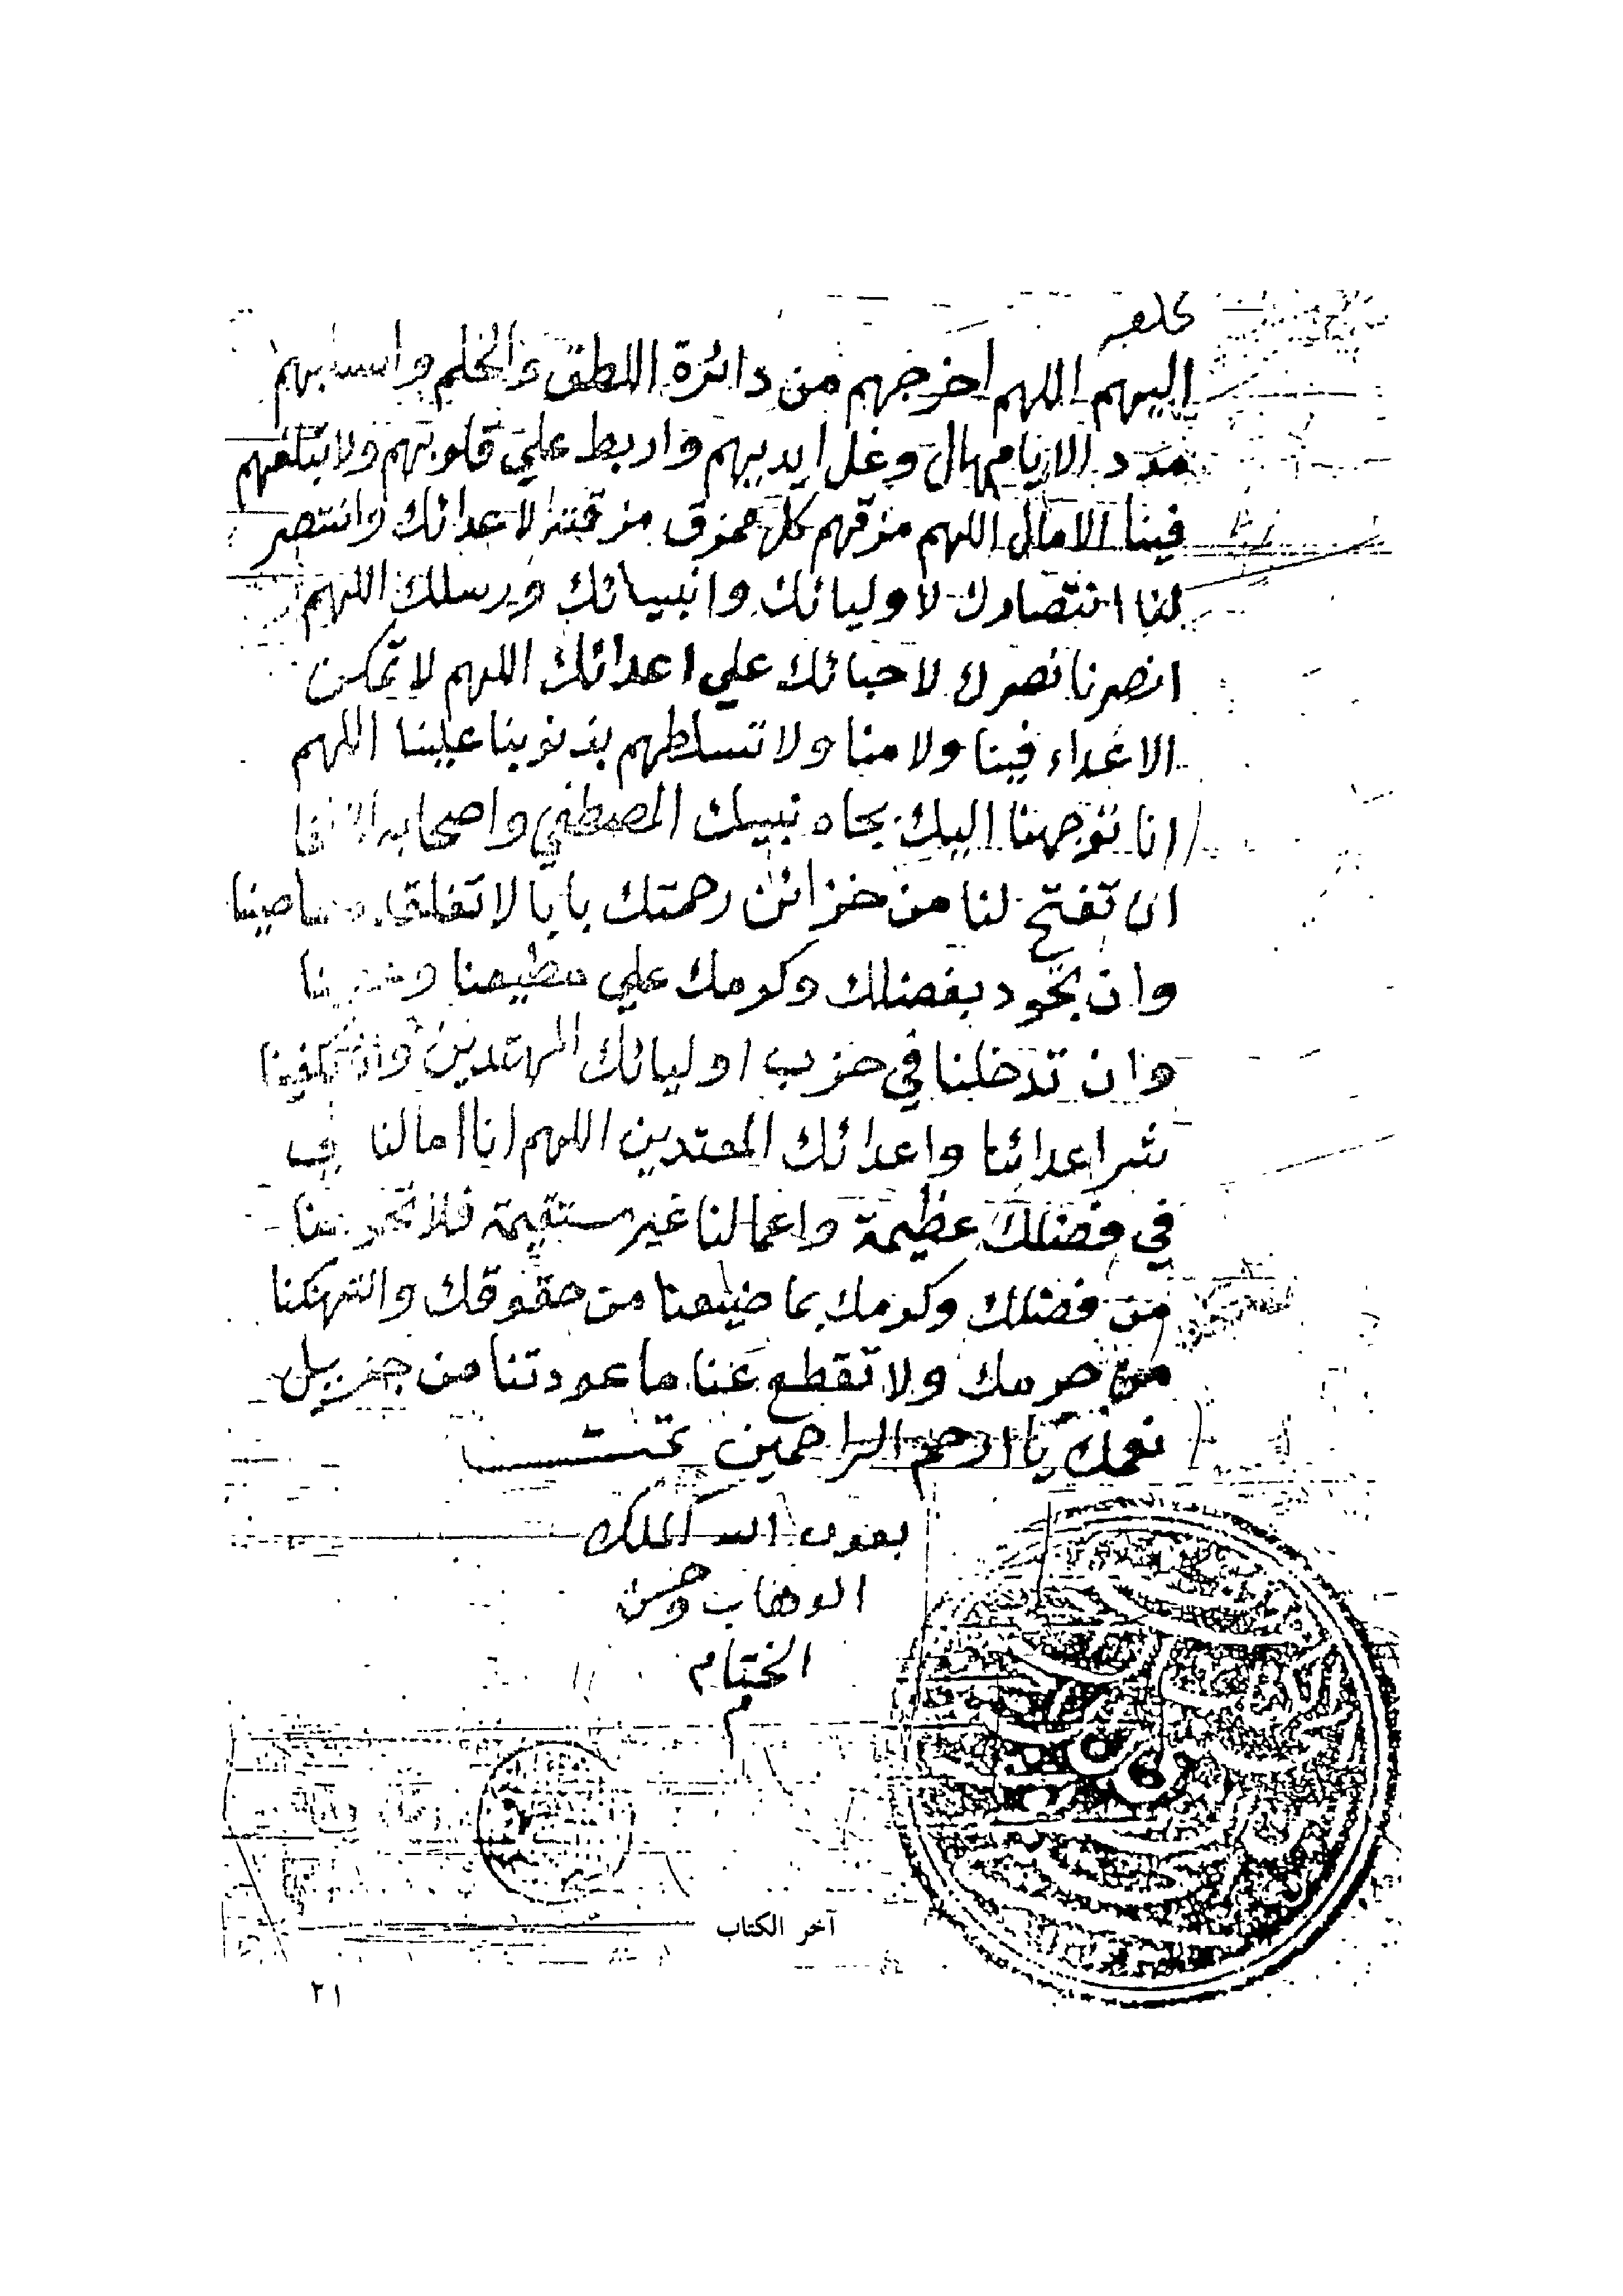 اليهم اللهم اخرجهم من دائرة اللطف والحلم واسلبهم
مدد الامهال وغل ايديهم واربط علي قلوبهم ولا تبلغهم
فينا الامال اللهم مزقهم كل ممزق مزقته لاعدائك وانتصر
لنا انتصارك لاوليائك وانبيائك ورسلك اللهم
انصرنا نصرك لاحبائك علي اعدائك اللهم لا تمكن
الاعداء فينا ولا منا ولا تسلطهم بذنوبنا علينا اللهم
انا توجهنا اليك بجاه نبيك المصطفي واصحابه
ان تفتح لنا من خزائن رحمتك بابا لا تغلقه
وان تجود بفضلك وكرمك علي مطيعنا
وان تدخلنا في حزب اوليائك المهتدين وان تكفينا
شر اعدائنا واعدائك المعتدين اللهم ان امالنا في
في فضلك عظيمة واعمالنا غير مستقيمة فلا تحرمنا
من فضلك وكرمك بما ضيعنا من حقوقك وانتهكنا
من حرمك ولا تقطع عنا ما عودتنا من جزيل
نعمك يا ارحم الراحمين تمت
بعون الله الملك
الوهاب وحسن
الختام
م
آخر الكتاب
٢١